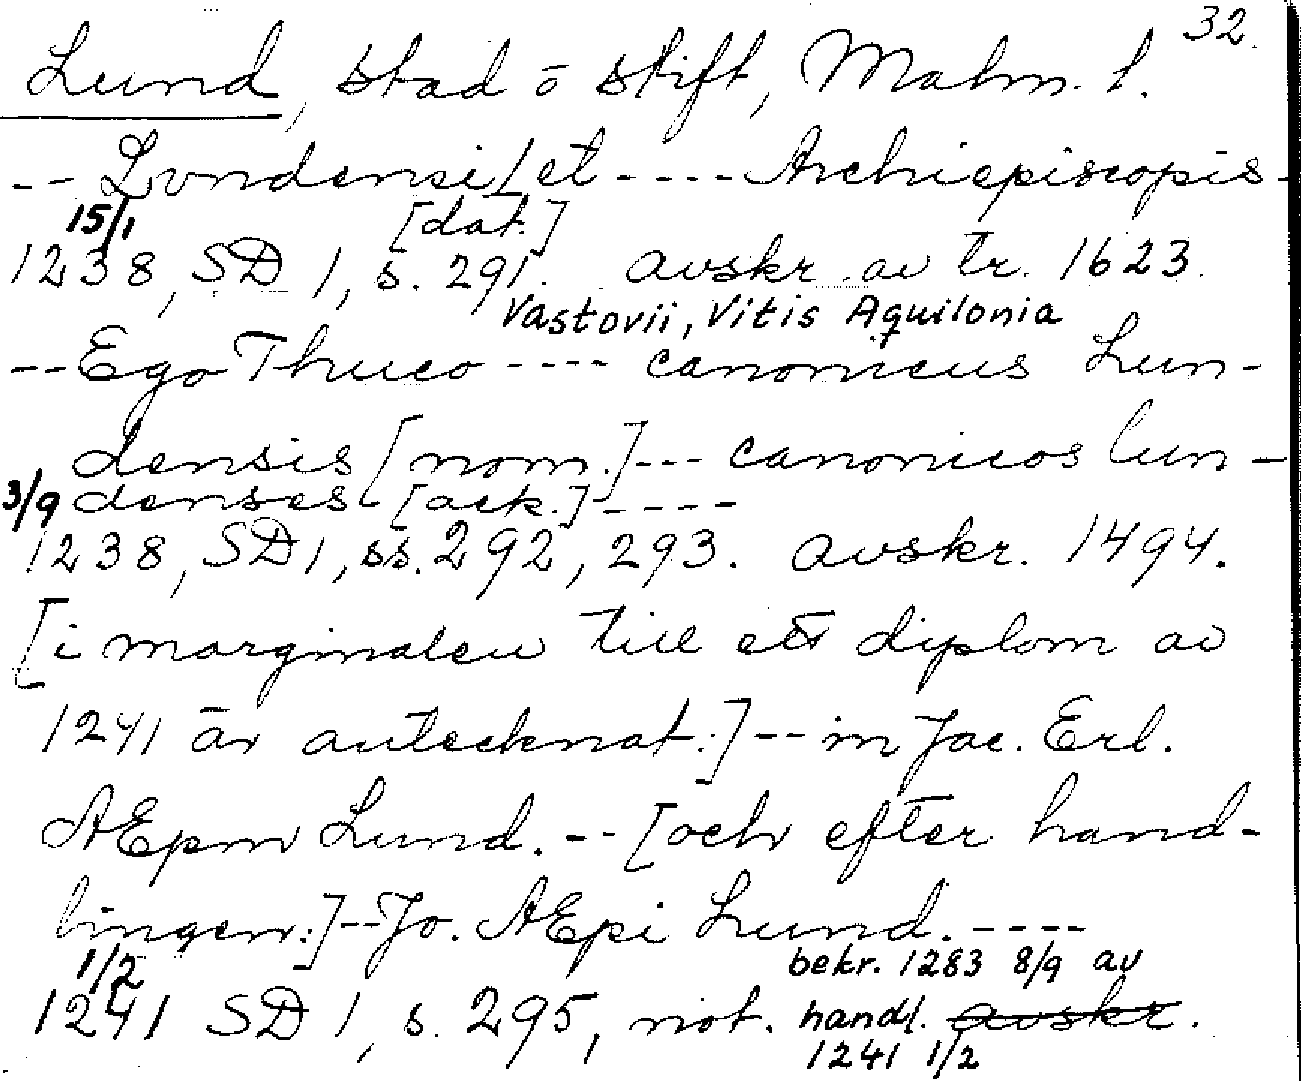 32.
Lund, stad ō stift, Malm. l.
-- Lvndensi [et ---- Archiepiscopis -
15/1 [dat.]
1238, SD 1, s. 291. avskr. av tr. 1623.
Vastovii, Vitis Aquilonia
-- Ego Thuco ---- canonicus Lun-
densis [nom.] --- canonicos lun-
3/9 denses [ack.] ----
1238, SD 1, ss. 292, 293. avskr. 1494.
[i marginalen till ett diplom av
1241 är antecknat:] -- in Jac. Erl.
AEpm Lund. -- [och efter hand-
lingen:] -- Jo. AEpi Lund. ----
1/2 bekr. 1283 8/9 av
1241 SD 1, s. 295, not. handl. avskr.
1241 1/2